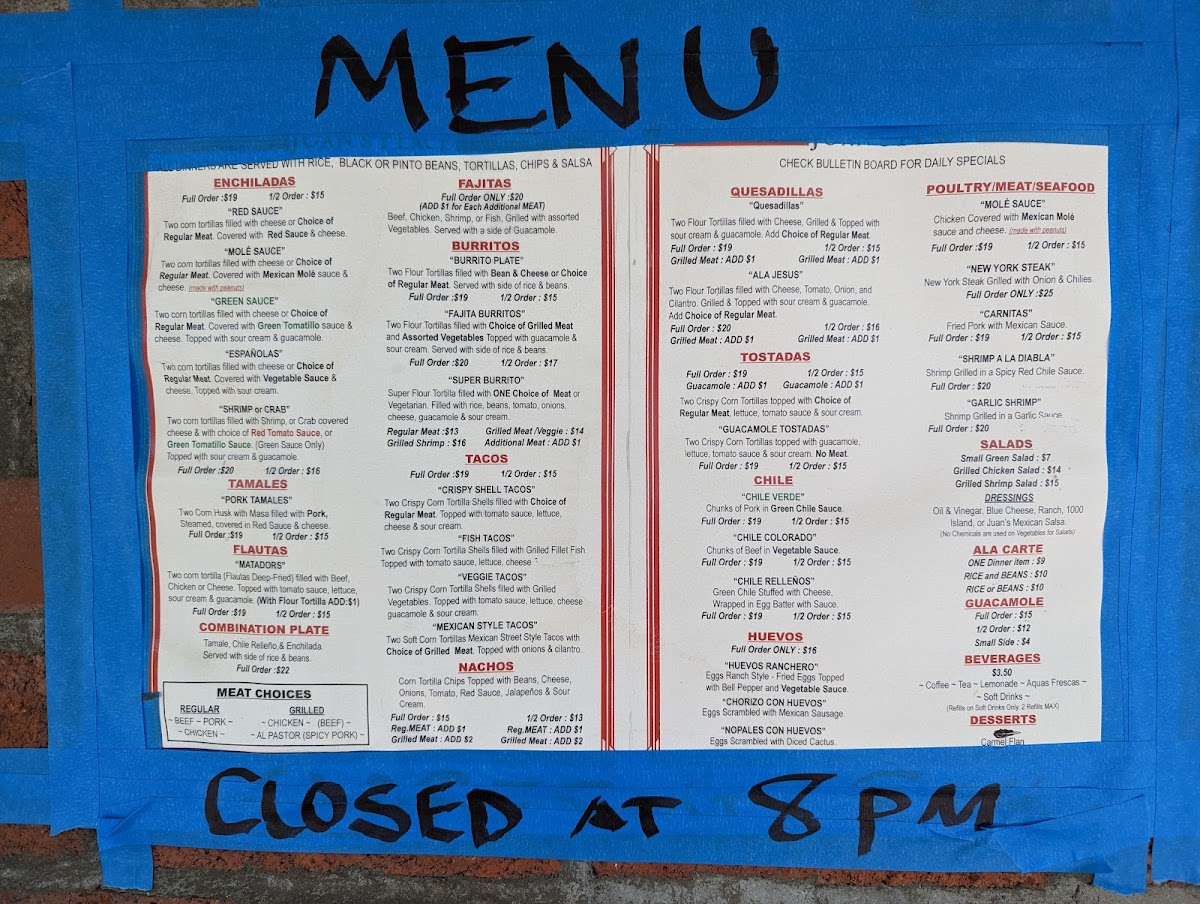 MENU
DINNERS ARE SERVED WITH RICE, BLACK OR PINTO BEANS, TORTILLAS, CHIPS & SALSA
ENCHILADAS
Full Order :$19 1/2 Order : $15
"RED SAUCE"
Two corn tortillas filled with cheese or Choice of
Regular Meat. Covered with Red Sauce & cheese.
"MOLÉ SAUCE"
Two corn tortillas filled with cheese or Choice of
Regular Meat. Covered with Mexican Molé sauce &
cheese. (made with peanuts)
"GREEN SAUCE"
Two corn tortillas filled with cheese or Choice of
Regular Meat. Covered with Green Tomatillo sauce &
cheese. Topped with sour cream & guacamole.
"ESPAÑOLAS"
Two corn tortillas filled with cheese or Choice of
Regular Meat. Covered with Vegetable Sauce &
cheese, Topped with sour cream.
"SHRIMP or CRAB"
Two corn tortillas filled with Shrimp, or Crab covered
cheese & with choice of Red Tomato Sauce, or
Green Tomatillo Sauce. (Green Sauce Only)
Topped with sour cream & guacamole.
Full Order :$20 1/2 Order : $16
TAMALES
"PORK TAMALES"
Two Corn Husk with Masa filled with Pork,
Steamed, covered in Red Sauce & cheese.
Full Order :$19 1/2 Order : $15
FLAUTAS
"MATADORS"
Two corn tortilla (Flautas Deep-Fried) filled with Beef,
Chicken or Cheese. Topped with tomato sauce, lettuce,
sour cream & guacamole. (With Flour Tortilla ADD:$1)
Full Order :$19 1/2 Order : $15
COMBINATION PLATE
Tamale, Chile Relleño,& Enchilada.
Served with side of rice & beans.
Full Order :$22
MEAT CHOICES
REGULAR GRILLED
~ BEEF ~ PORK ~ ~ CHICKEN ~ (BEEF) ~
~ CHICKEN ~ ~ AL PASTOR (SPICY PORK) ~
FAJITAS
Full Order ONLY :$20
(ADD $1 for Each Additional MEAT)
Beef, Chicken, Shrimp, or Fish, Grilled with assorted
Vegetables. Served with a side of Guacamole.
BURRITOS
"BURRITO PLATE"
Two Flour Tortillas filled with Bean & Cheese or Choice
of Regular Meat. Served with side of rice & beans.
Full Order :$19 1/2 Order : $15
"FAJITA BURRITOS"
Two Flour Tortillas filled with Choice of Grilled Meat
and Assorted Vegetables Topped with guacamole &
sour cream. Served with side of rice & beans.
Full Order :$20 1/2 Order : $17
"SUPER BURRITO"
Super Flour Tortilla filled with ONE Choice of Meat or
Vegetarian. Filled with rice, beans, tomato, onions,
cheese, guacamole & sour cream.
Regular Meat :$13 Grilled Meat /Veggie : $14
Grilled Shrimp : $16 Additional Meat : ADD $1
TACOS
Full Order :$19 1/2 Order : $15
"CRISPY SHELL TACOS"
Two Crispy Corn Tortilla Shells filled with Choice of
Regular Meat. Topped with tomato sauce, lettuce,
cheese & sour cream.
"FISH TACOS"
Two Crispy Corn Tortilla Shells filled with Grilled Fillet Fish.
Topped with tomato sauce, lettuce, cheese
"VEGGIE TACOS"
Two Crispy Corn Tortilla Shells filled with Grilled
Vegetables. Topped with tomato sauce, lettuce, cheese
guacamole & sour cream.
"MEXICAN STYLE TACOS"
Two Soft Corn Tortillas Mexican Street Style Tacos with
Choice of Grilled Meat. Topped with onions & cilantro.
NACHOS
Corn Tortilla Chips Topped with Beans, Cheese,
Onions, Tomato, Red Sauce, Jalapeños & Sour
Cream.
Full Order : $15 1/2 Order : $13
Reg.MEAT : ADD $1 Reg.MEAT : ADD $1
Grilled Meat : ADD $2 Grilled Meat : ADD $2
CHECK BULLETIN BOARD FOR DAILY SPECIALS
QUESADILLAS
"Quesadillas"
Two Flour Tortillas filled with Cheese, Grilled & Topped with
sour cream & guacamole. Add Choice of Regular Meat.
Full Order : $19 1/2 Order : $15
Grilled Meat : ADD $1 Grilled Meat : ADD $1
"ALA JESUS"
Two Flour Tortillas filled with Cheese, Tomato, Onion, and
Cilantro. Grilled & Topped with sour cream & guacamole.
Add Choice of Regular Meat.
Full Order : $20 1/2 Order : $16
Grilled Meat : ADD $1 Grilled Meat : ADD $1
TOSTADAS
Full Order : $19 1/2 Order : $15
Guacamole : ADD $1 Guacamole : ADD $1
Two Crispy Corn Tortillas topped with Choice of
Regular Meat, lettuce, tomato sauce & sour cream.
"GUACAMOLE TOSTADAS"
Two Crispy Corn Tortillas topped with guacamole,
lettuce, tomato sauce & sour cream. No Meat.
Full Order : $19 1/2 Order : $15
CHILE
"CHILE VERDE"
Chunks of Pork in Green Chile Sauce.
Full Order : $19 1/2 Order : $15
"CHILE COLORADO"
Chunks of Beef in Vegetable Sauce.
Full Order : $19 1/2 Order : $15
"CHILE RELLEÑOS"
Green Chile Stuffed with Cheese,
Wrapped in Egg Batter with Sauce.
Full Order : $19 1/2 Order : $15
HUEVOS
Full Order ONLY : $16
"HUEVOS RANCHERO"
Eggs Ranch Style - Fried Eggs Topped
with Bell Pepper and Vegetable Sauce.
"CHORIZO CON HUEVOS"
Eggs Scrambled with Mexican Sausage.
"NOPALES CON HUEVOS"
Eggs Scrambled with Diced Cactus.
POULTRY/MEAT/SEAFOOD
"MOLÉ SAUCE"
Chicken Covered with Mexican Molé
sauce and cheese. (made with peanuts)
Full Order :$19 1/2 Order : $15
"NEW YORK STEAK"
New York Steak Grilled with Onion & Chilies.
Full Order ONLY :$25
"CARNITAS"
Fried Pork with Mexican Sauce.
Full Order : $19 1/2 Order : $15
"SHRIMP A LA DIABLA"
Shrimp Grilled in a Spicy Red Chile Sauce.
Full Order : $20
"GARLIC SHRIMP"
Shrimp Grilled in a Garlic Sauce
Full Order : $20
SALADS
Small Green Salad : $7
Grilled Chicken Salad : $14
Grilled Shrimp Salad : $15
DRESSINGS
Oil & Vinegar, Blue Cheese, Ranch, 1000
Island, or Juan's Mexican Salsa.
(No Chemicals are used on Vegetables for Salads)
ALA CARTE
ONE Dinner item : $9
RICE and BEANS : $10
RICE or BEANS : $10
GUACAMOLE
Full Order : $15
1/2 Order : $12
Small Side : $4
BEVERAGES
$3.50
~ Coffee ~ Tea ~ Lemonade ~ Aquas Frescas ~
~ Soft Drinks ~
(Refills on Soft Drinks Only. 2 Refills MAX)
DESSERTS
Carmel Flan
CLOSED AT 8 PM